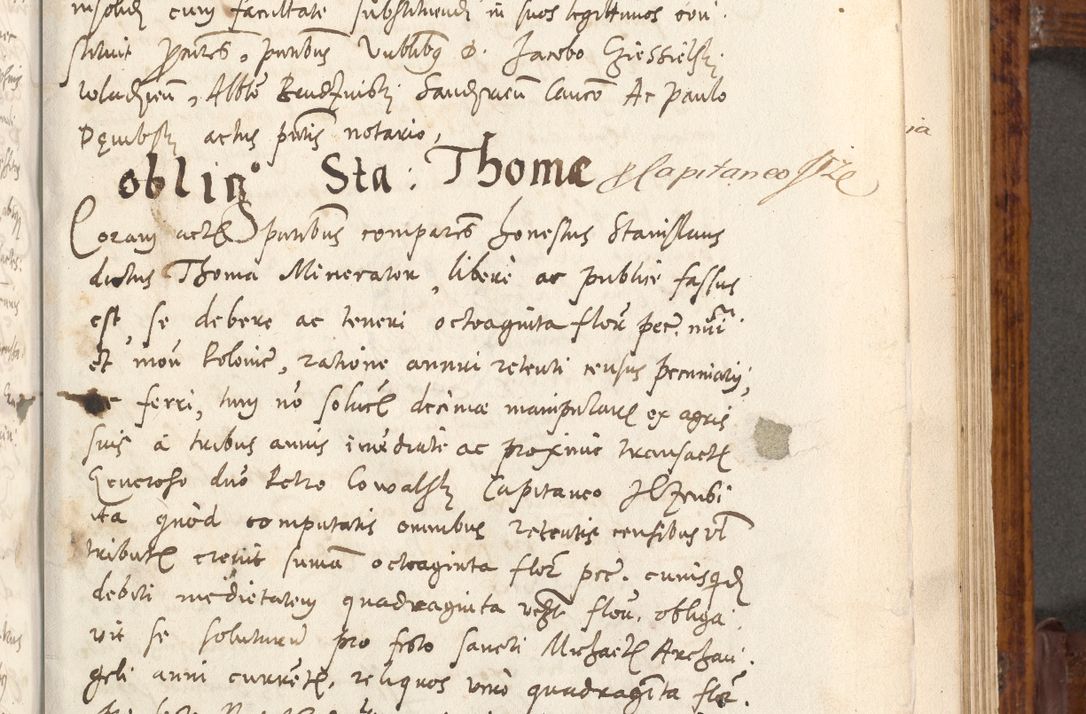 insolid cum facultate substituendi in suos legittimos con
stituit pntes, pntibus Vnblibg D. Jacobo Giessielsky
wludzien, Albto Sandzrien Canco Ac Paulo
Dęmbsky actus pntis notario,
oblig° Sta: Thome p Capitaneo Jlze
Coram actis pntibus comparens honestus Stanislaus
dictus Thoma Minerator, libere ac publice fassus
est, se debere ac teneri octoaginta flor pec. nūi
et mon Polonie, ratione annui retenti census pecuniarij,
ferri, tum nō solute decimae manipularis ex agris
suis a tribus annis imediate ac proxime transactis
Generoso dno Petro Cowalsky Capitaneo Jlzensi
ita quod computatis omnibus retentis censibus vl
tributis crevit sumā octoaginta flor pec. cuiusqd
debiti medietatem quadraginta vizt flor. obliga
vit se soluturū pro festo sancti Michaelis Archan.
geli anni currētis, reliquos vero quadragīta flor.